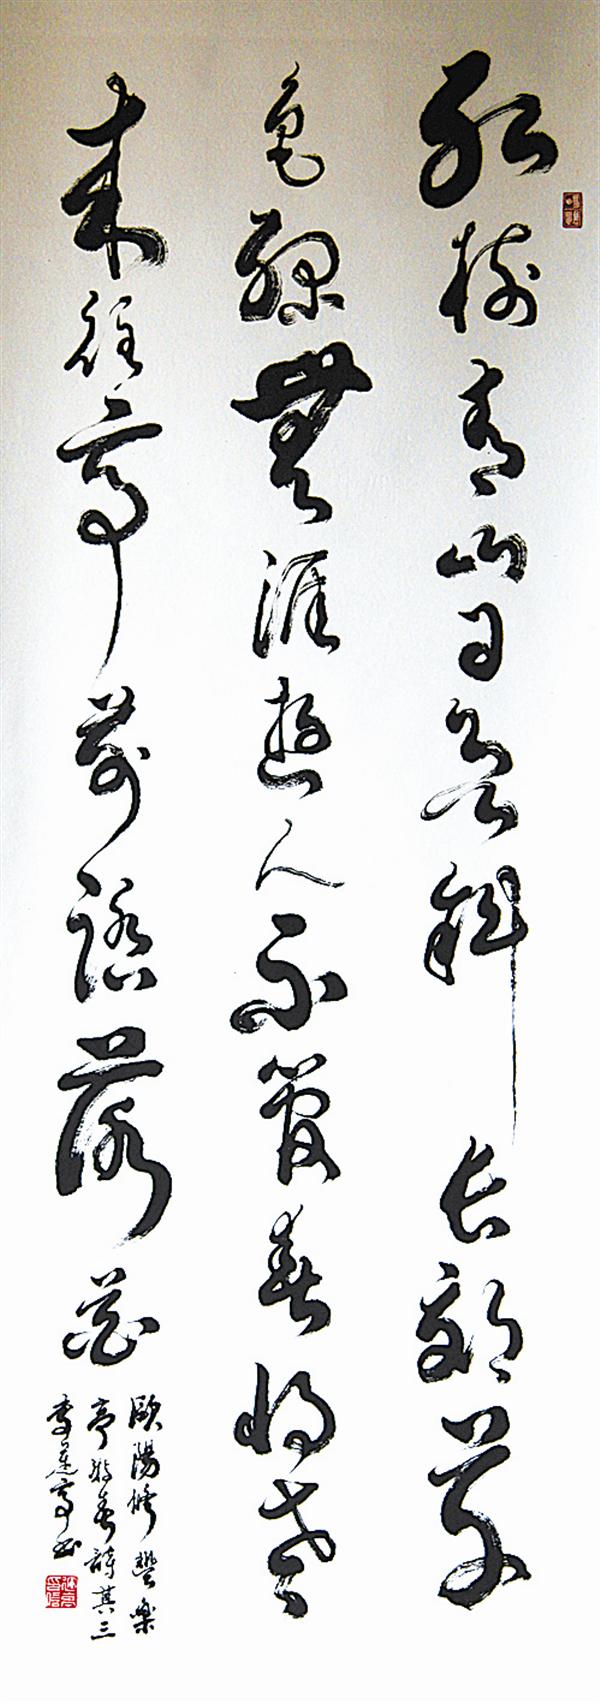 紅樹青山日欲斜長郊草
色綠無涯遊人不管春將老
來往亭前踏落花
歐陽修豐樂
亭游春詩其三
李亭書